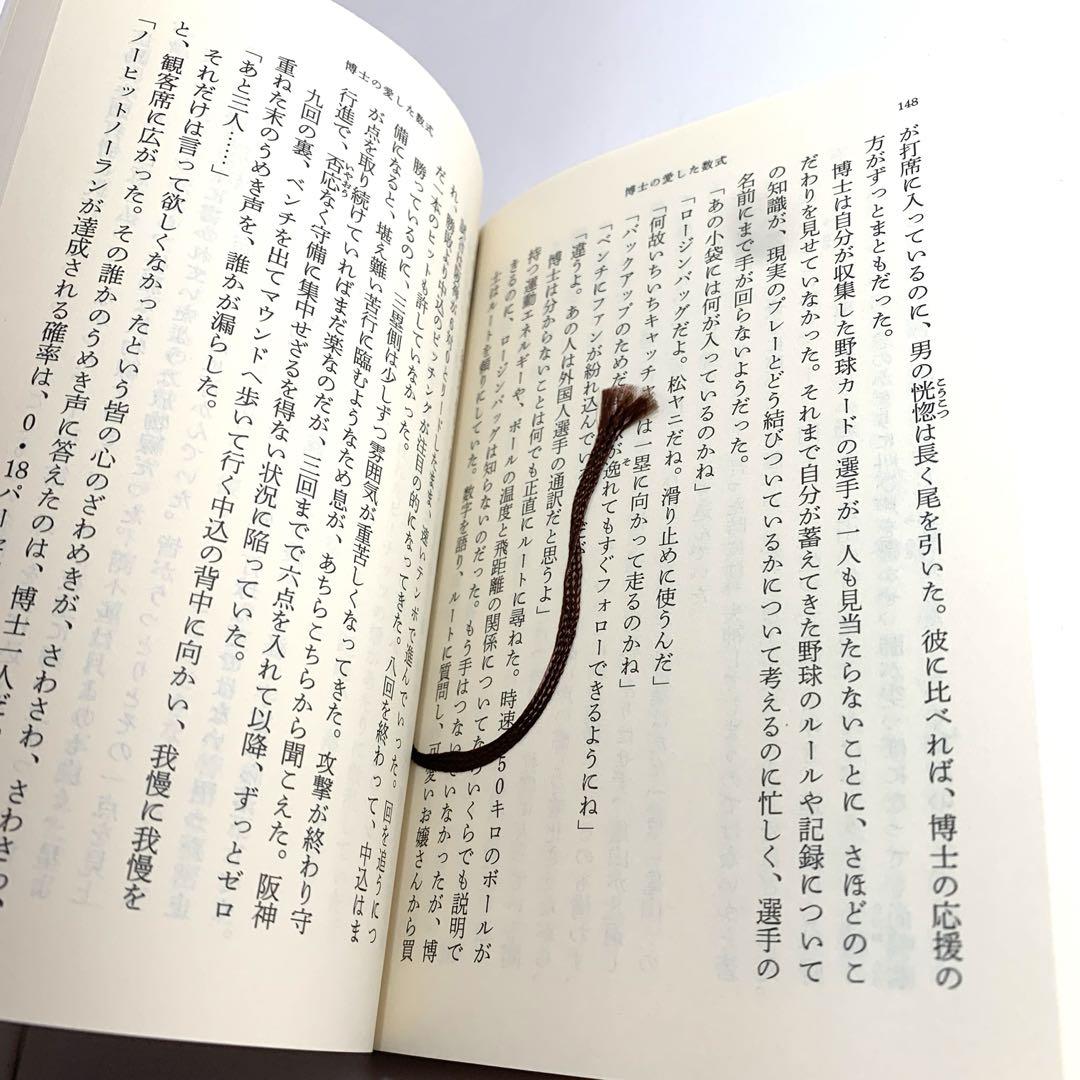 148
博士の愛した数式
が打席に入っているのに、男の恍惚は長く尾を引いた。彼に比べれば、博士の応援の
方がずっとまともだった。
博士は自分が収集した野球カードの選手が一人も見当たらないことに、さほどのこ
だわりを見せていなかった。それまで自分が蓄えてきた野球のルールや記録について
の知識が、現実のプレーとどう結びついているかについて考えるのに忙しく、選手の
名前にまで手が回らないようだった。
「あの小袋には何が入っているのかね」
「ロージンバッグだよ。松ヤニだね。滑り止めに使うんだ」
「何故いちいちキャッチャーは一塁に向かって走るのかね」
「バックアップのためだ 逸れてもすぐフォローできるようにね」
「ベンチにファンが紛れ込んでい
「違うよ。あの人は外国人選手の通訳だと思うよ」
博士は分からないことは何でも正直にルートに尋ねた。時速 50キロのボールが
持つ運動エネルギーや、ボールの温度と飛距離の関係についてならいくらでも説明で
きるのに、ロージンバッグは知らないのだった。もう手はつないでいなかったが、博
士はルートを頼りにしていた。数字を語り、ルートに質問し、可愛いお嬢さんから買
博士の愛した数式
リードしたまま、速いテンポで進んでいった。回を追うにつ
れ、勝敗より中込のピッチングが注目の的になってきた。八回を終わって、中込はま
だ一本のヒットも許していなかった。
勝っているのに、三塁側は少しずつ雰囲気が重苦しくなってきた。攻撃が終わり守
備になると、堪え難い苦行に臨むようなため息が、あちらこちらから聞こえた。阪神
が点を取り続けていればまだ楽なのだが、三回までで六点を入れて以降、ずっとゼロ
行進で、否応なく守備に集中せざるを得ない状況に陥っていた。
九回の裏、ベンチを出てマウンドへ歩いて行く中込の背中に向かい、我慢に我慢を
重ねた末のうめき声を、誰かが漏らした。
「あと三人……」
それだけは言って欲しくなかったという皆の心のざわめきが、さわさわ、さわさわ、
と、観客席に広がった。その誰かのうめき声に答えたのは、博士一人だ
「ノーヒットノーランが達成される確率は、0・18パーセ